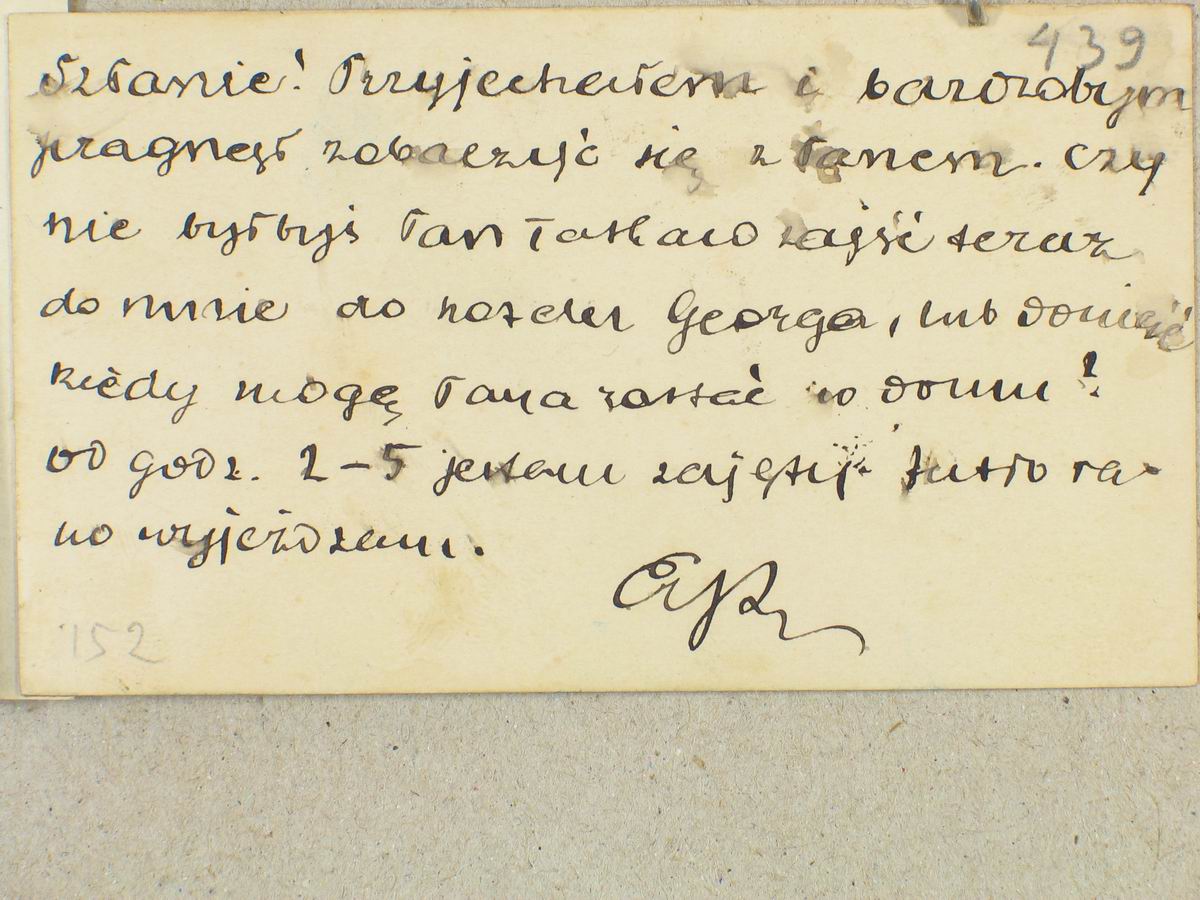 439
Sz Panie! Przyjechałem i bardzobym
pragnął zobaczyć się z Panem. Czy
nie byłbyś Pan łaskaw zajść teraz
do mnie do hotelu Georga, lub donieść
kiedy mogę Pana zastać w domu?
Od godz. 2-5 jestem zajęty. Jutro ra-
no wyjeżdżam.
152